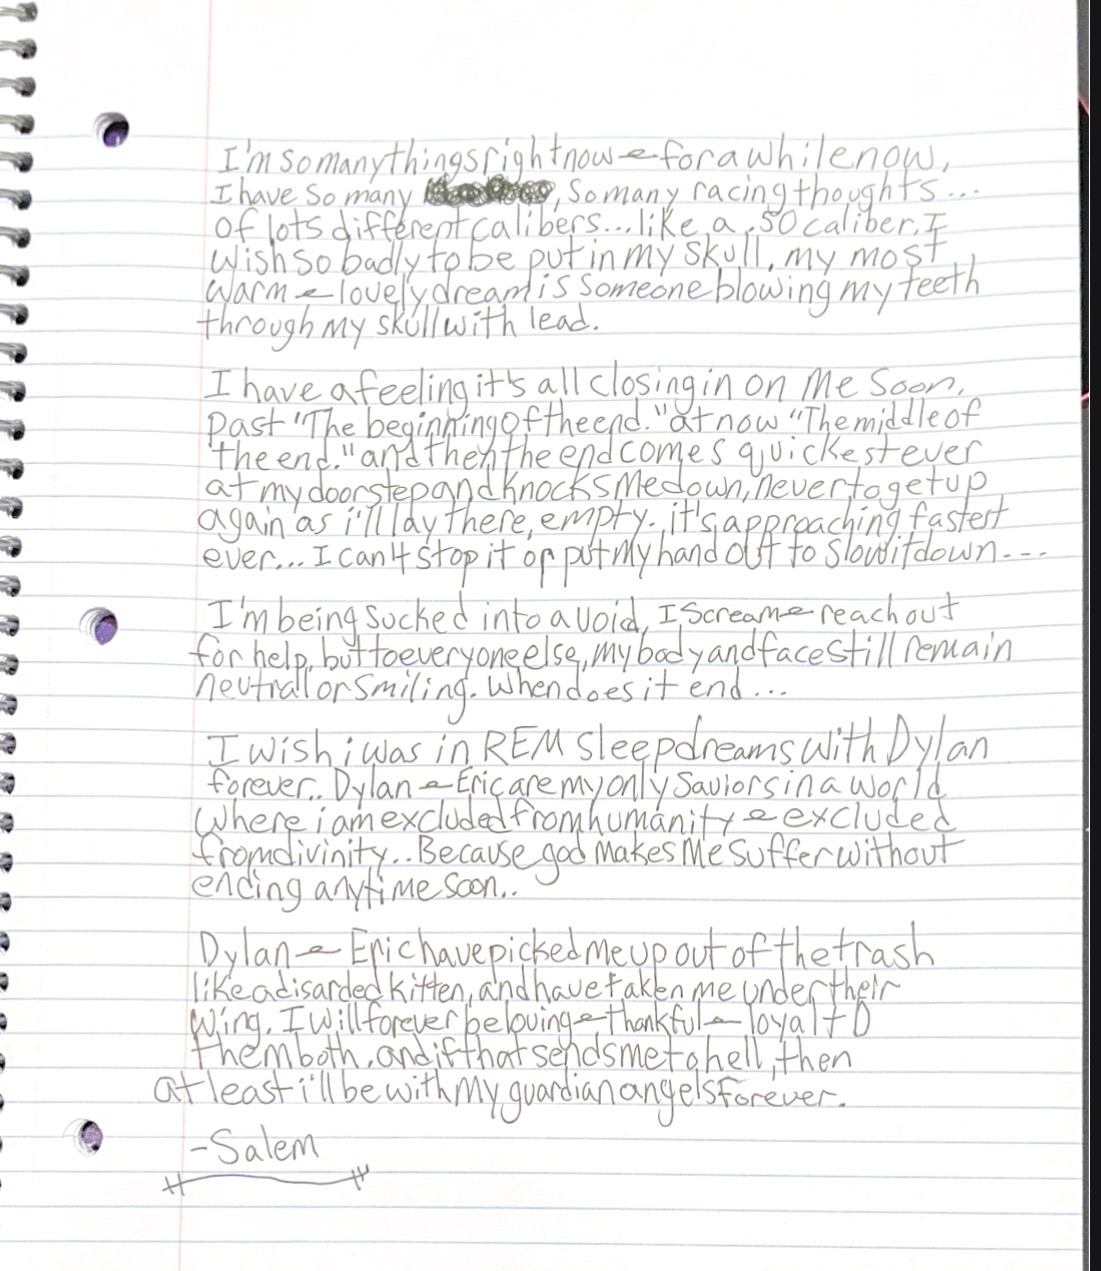 I'm so many things right now & for a while now,
I have so many , so many racing thoughts...
of lots different calibers... like a .50 caliber. I
wish so badly to be put in my skull, my most
warm & lovely dream is someone blowing my teeth
through my skull with lead.
I have a feeling it's all closing in on me soon,
past "The beginning of the end." at now "The middle of
the end." and then the end comes quickest ever
at my doorstep and knocks me down, never to get up
again as i'll lay there, empty. it's approaching fastest
ever... I can't stop it or put my hand out to slow it down...
I'm being sucked into a void, I scream & reach out
for help, but to everyone else, my body and face still remain
neutral or smiling. When does it end...
I wish i was in REM sleep dreams with Dylan
forever.. Dylan & Eric are my only saviors in a world
where i am excluded from humanity & excluded
from divinity.. Because god makes me suffer without
ending anytime soon..
Dylan & Eric have picked me up out of the trash
like a disarded kitten, and have taken me under their
wing. I will forever be loving & thankful & loyal to
them both, and if that sends me to hell, then
at least i'll be with my guardian angels forever.
-Salem